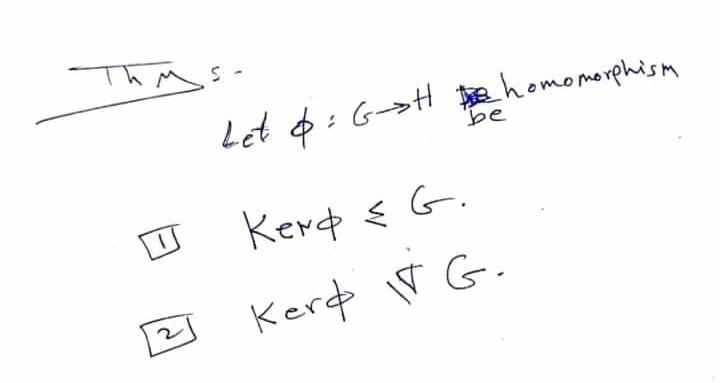 Thms.
Let φ : G → H be homomorphism
1 Kerφ ≤ G.
2 Kerφ ⊴ G.